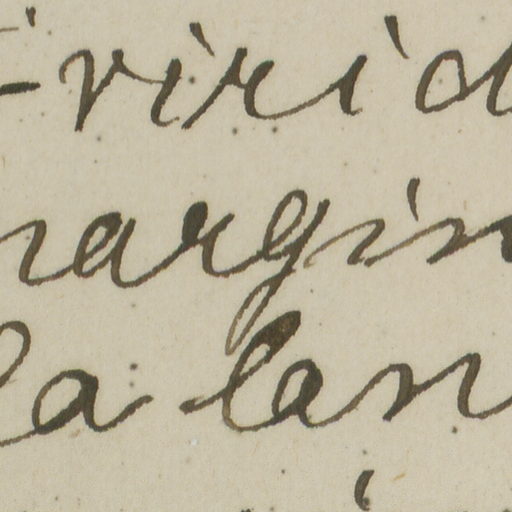 -virid
margin
la lan